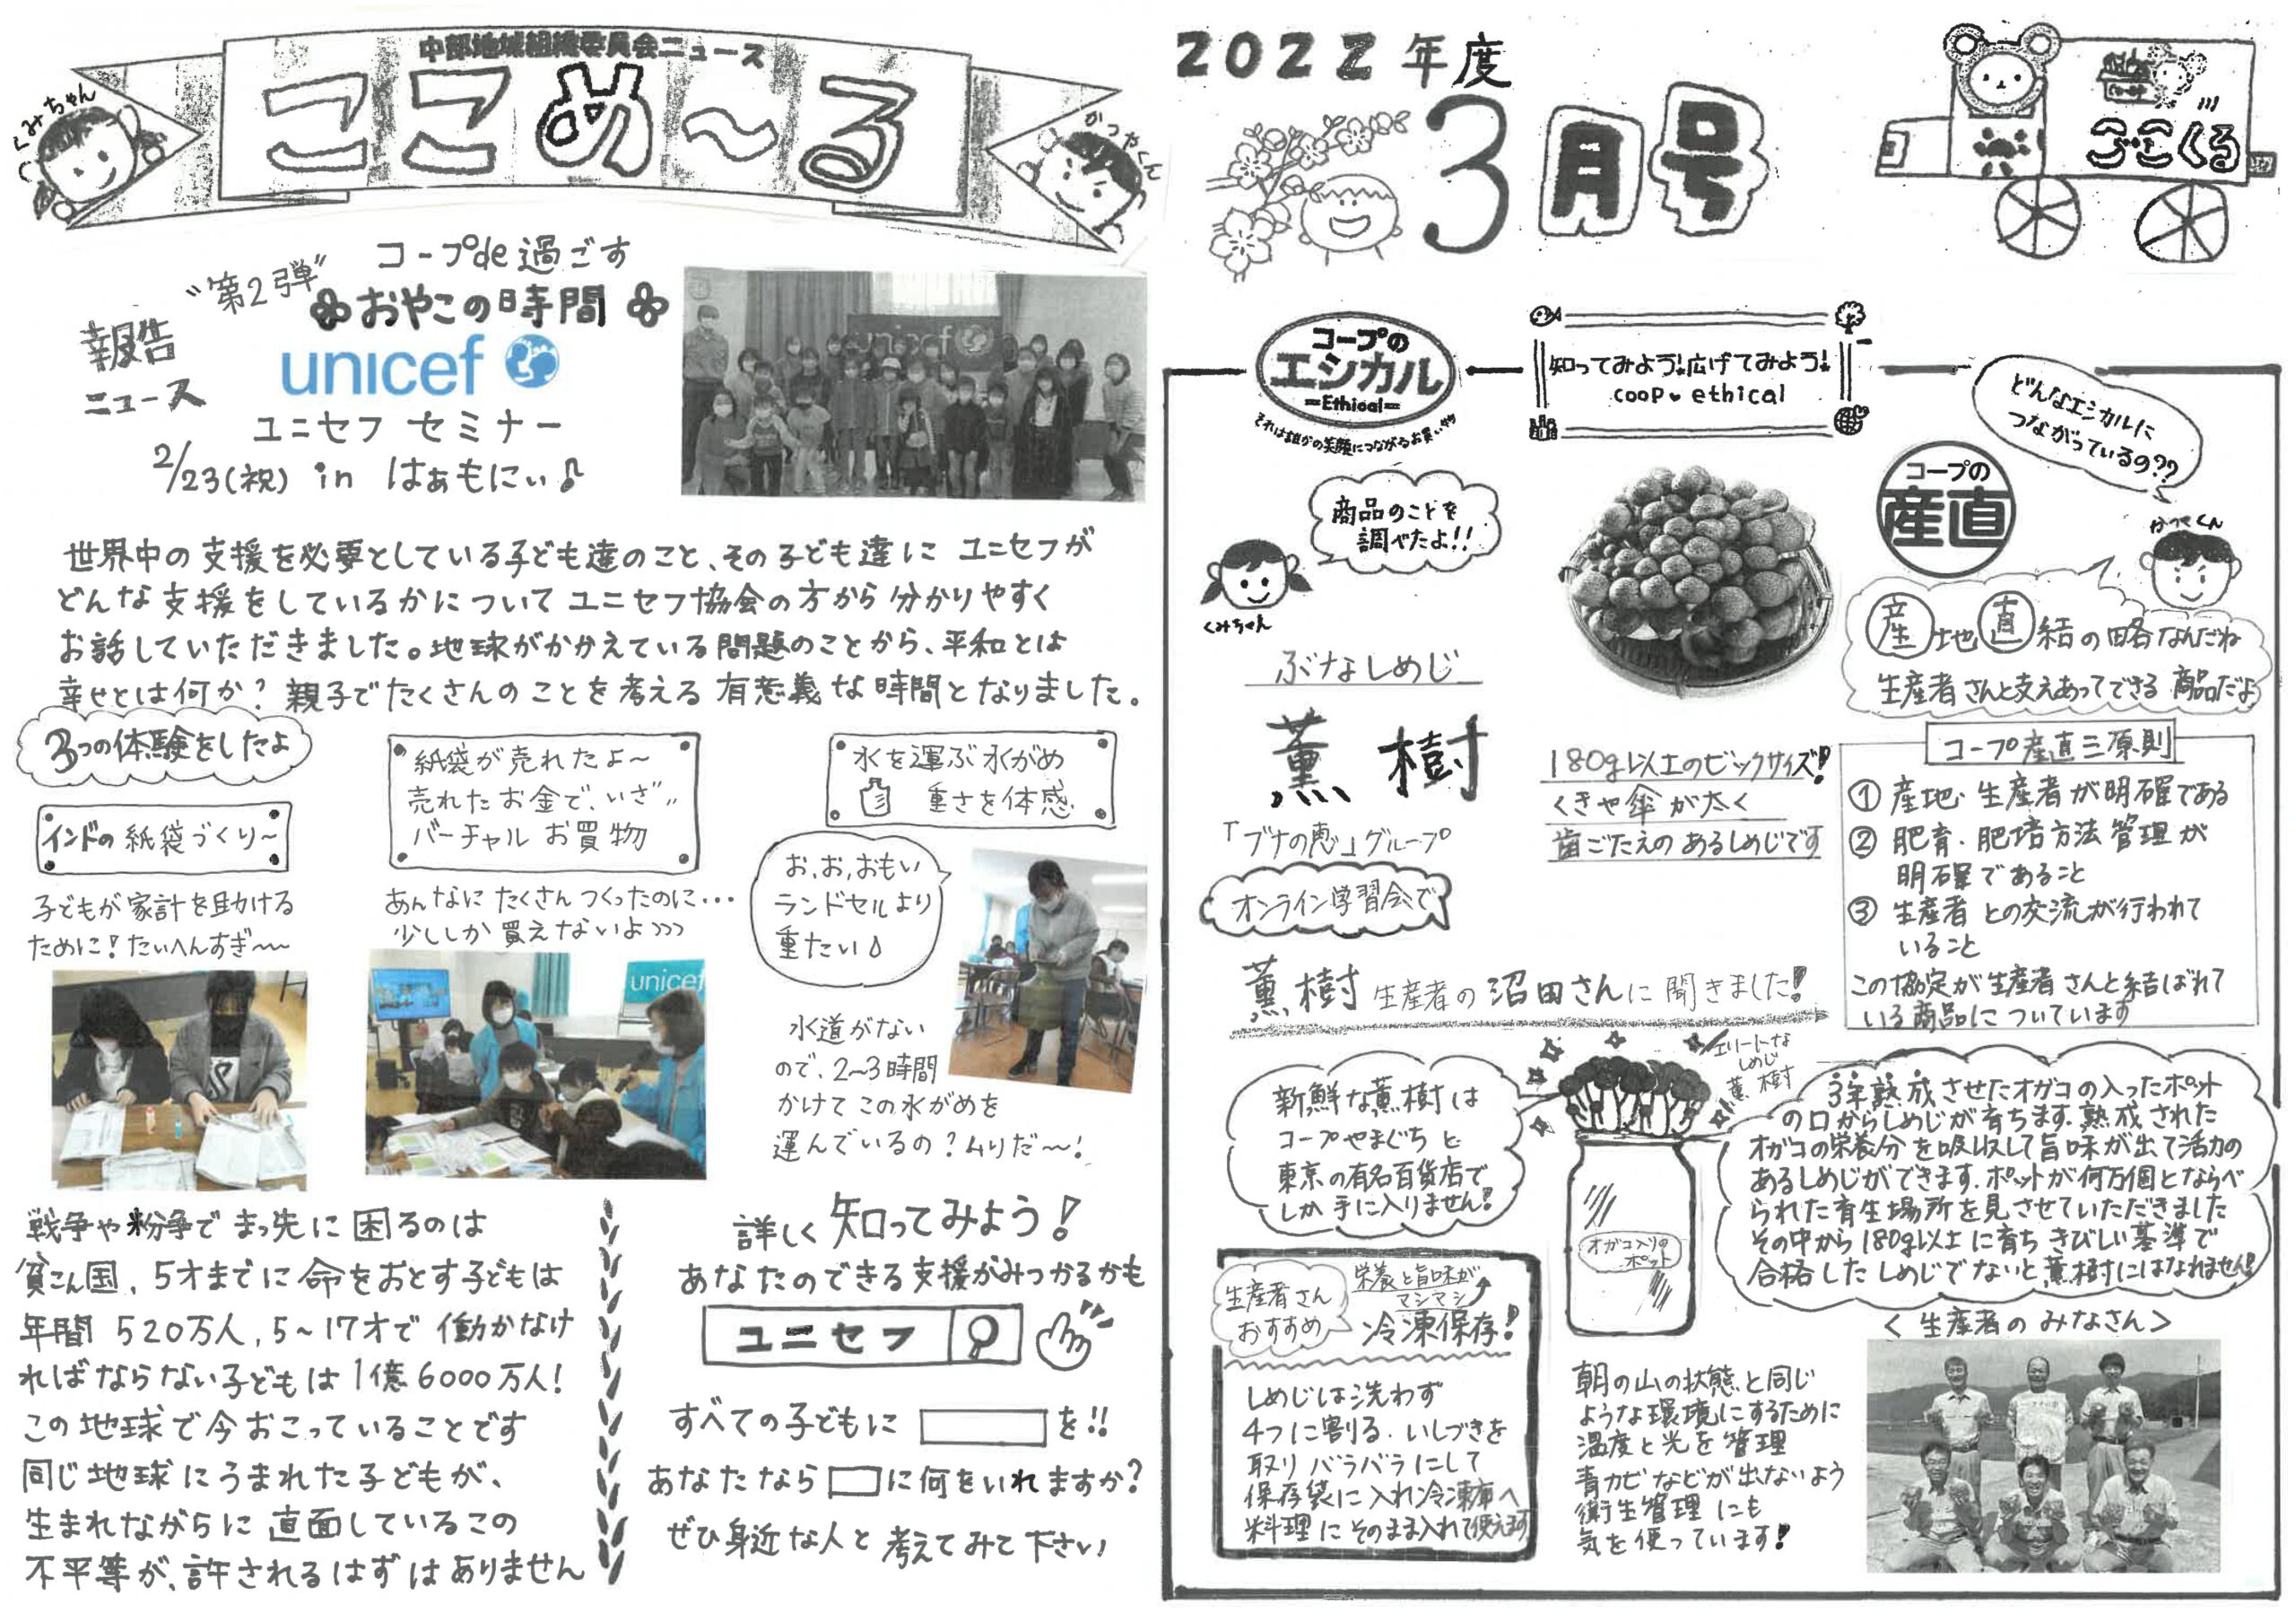 中部地域組織委員会ニュース
ここめ～る
くみちゃん
かつやくん
2022年度
3月号
ここくる
報告
ニュース
"第2弾"
コープde過ごす
おやこの時間
unicef
ユニセフ セミナー
2/23(祝) in はぁもにぃ♪
世界中の支援を必要としている子ども達のこと、その子ども達に ユニセフが
どんな支援をしているかについて ユニセフ協会の方から分かりやすく
お話していただきました。地球がかかえている問題のことから、平和とは
幸せとは何か？ 親子でたくさんのことを考える有意義な時間となりました。
3つの体験をしたよ
インドの紙袋づくり～
子どもが家計を助ける
ために！たいへんすぎ～～
紙袋が売れたよ～
売れたお金で、いざ〃
バーチャル お買物
あんなに たくさん つくったのに…
少ししか買えないよ>>>
unicef
水を運ぶ水がめ
重さを体感
お,お,おもい
ランドセルより
重たい
水道がない
ので、2～3時間
かけてこの水がめを
運んでいるの？ムリだ～！
戦争や紛争でまっ先に困るのは
貧こん国、5才までに命をおとす子どもは
年間520万人, 5～17才で働かなけ
ればならない子どもは1億6000万人！
この地球で今おこっていることです
同じ地球にうまれた子どもが、
生まれながらに直面しているこの
不平等が、許されるはずはありません
詳しく知ってみよう！
あなたのできる支援がみつかるかも
ユニセフ
すべての子どもに□を!!
あなたなら□に何をいれますか？
ぜひ身近な人と考えてみて下さい
コープの
エシカル
=Ethical=
それは誰かの笑顔につながるお買い物
知ってみよう！広げてみよう！
coop♥ethical
どんなエシカルに
つながっているの??
コープの
産直
かつやくん
商品のことを
調べたよ!!
くみちゃん
産地直結の略なんだね
生産者さんと支えあってできる商品だよ
ぶなしめじ
薫樹
「ブナの恵」グループ
180g以上のビックサイズ！
くきや傘が太く
歯ごたえのあるしめじです
コープ産直三原則
① 産地・生産者が明確である
② 肥育・肥培方法管理が
明確であること
③ 生産者との交流が行われて
いること
この協定が生産者さんと結ばれて
いる商品についています
オンライン学習会で
薫樹 生産者の沼田さんに聞きました！
新鮮な薫樹は
コープやまぐちと
東京の有名百貨店で
しか手に入りません！
エリートな
しめじ
薫樹
オガコ入りの
ポット
3年熟成させたオガコの入ったポット
の口からしめじが育ちます.熟成された
オガコの栄養分を吸収して旨味が出て活力の
あるしめじができます.ポットが何万個とならべ
られた育生場所を見させていただきました
その中から180g以上に育ちきびしい基準で
合格したしめじでないと薫樹にはなれません！
生産者さん
おすすめ
栄養と旨味が
マシマシ
冷凍保存！
しめじは洗わず
4つに割る．いしづきを
取りバラバラにして
保存袋に入れ冷凍庫へ
料理にそのまま入れて使えます
朝の山の状態と同じ
ような環境にするために
温度と光を管理
青カビなどが出ないよう
衛生管理にも
気を使っています！
<生産者のみなさん>